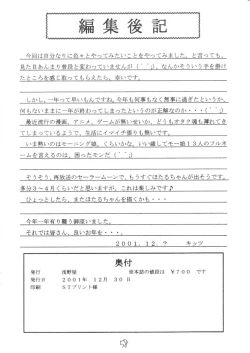 編集後記
今回は自分なりに色々とやってみたいことをやってみました。と言っても、
見た目あんまり普段と変わっていませんが（＾＾；）、なんかそういう手を掛け
たところを感じ取ってもらえたら、幸いです。
しかし、一年って早いもんですね。今年も何事もなく無事に過ぎたというか、
何もないままに一年が終わってしまったというのが正解なのか・・・（＾＾；）
最近流行の漫画、アニメ、ゲームが無いせいか、どうもオタク魂も薄れてき
てしまっているようで、生活にイマイチ張りも無いです。
いま熱いのはモーニング娘。くらいかな。いい歳してモー娘１３人のフルネ
ームを言えるのは、困ったモンだ（＾＾；）
そうそう、再放送のセーラームーンで、もうすぐほたるちゃんが出そうです。
多分３～４月くらいだと思いますが、これは楽しみです♪
ひょっとしたら、またほたるちゃんを描くかも・・・
今年一年有り難う御座いました。
それでは皆さん、良いお年を・・・。
２００１．１２．？　キッヅ
奥付
発行　浅野屋　本本誌の値段は　￥７００　です
発行日　２００１年　１２月　３０日
印刷　ＳＴプリント様